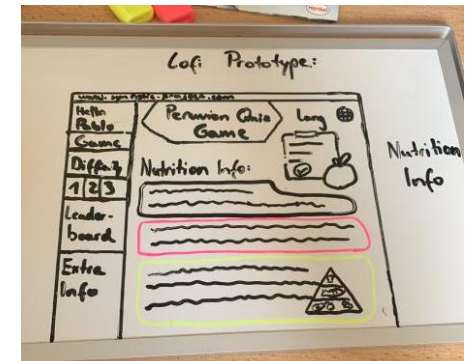 Lofi Prototype:
Hello
Pablo
Game
1 2 3
Leader-
board
Extra
Info
Peruvian
Game
Lang
Nutrition Info:
Nutrition
Info